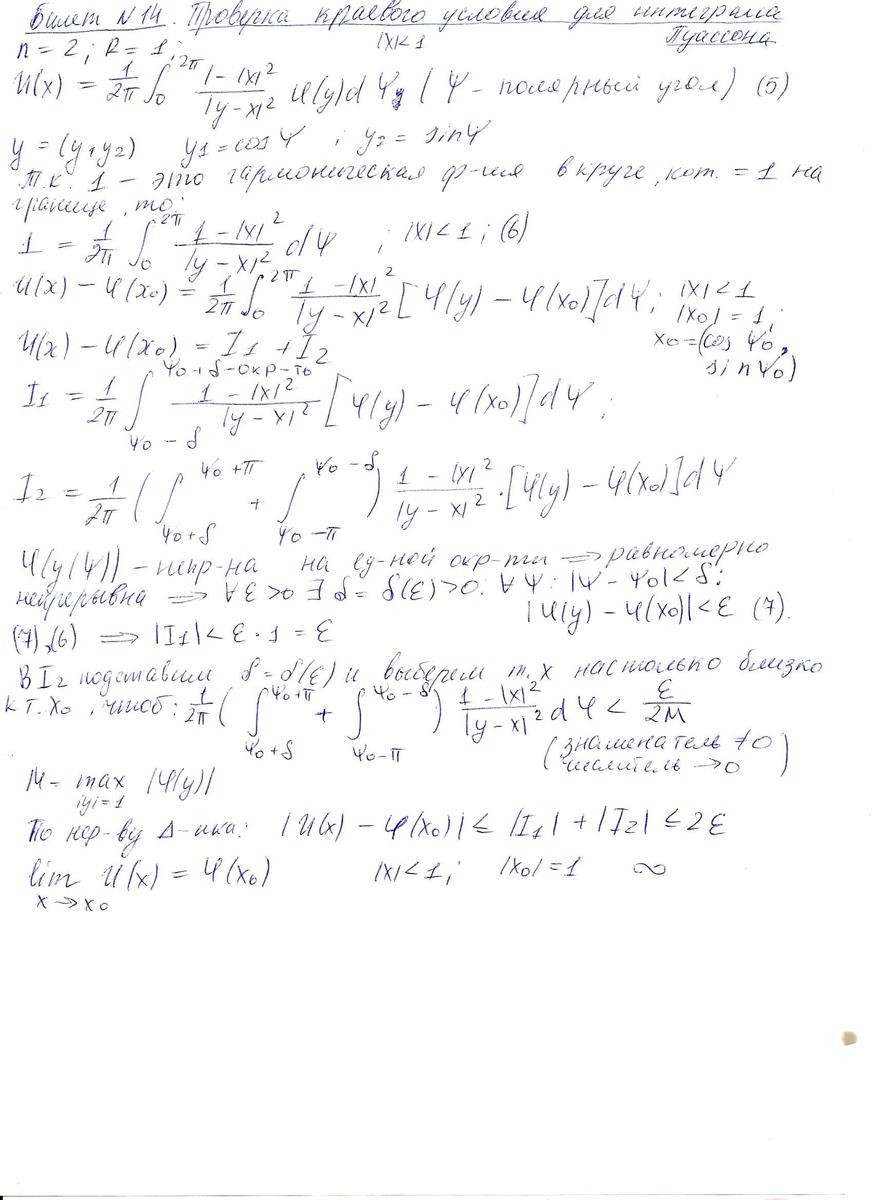 Билет №14. Проверка краевого условия для интеграла Пуассона
n = 2; R = 1; |x|<1
U(x) = 1/2π ∫₀^2π (1-|x|²)/|y-x|² φ(y)dψ_y (ψ - полярный угол) (5)
y = (y1 y2) y1 = cosψ ; y2 = sinψ
Т.к. 1 - это гармоническая ф-ция в круге, кот. = 1 на
границе, то:
1 = 1/2π ∫₀^2π (1-|x|²)/|y-x|² dψ ; |x|<1; (6)
U(x) - φ(x0) = 1/2π ∫₀^2π (1-|x|²)/|y-x|² [φ(y) - φ(x0)]dψ; |x|<1 |x0| = 1;
U(x) - φ(x0) = I1 + I2 x0=(cos ψ0, sin ψ0)
I1 = 1/2π ∫_{ψ0-δ}^{ψ0+δ-окр-ть} (1-|x|²)/|y-x|² [φ(y) - φ(x0)]dψ;
I2 = 1/2π (∫_{ψ0+δ}^{ψ0+π} + ∫_{ψ0-π}^{ψ0-δ}) (1-|x|²)/|y-x|² · [φ(y) - φ(x0)]dψ
φ(y(ψ)) - непр-на на ед-ной окр-ти ⟹ равномерно
непрерывна ⟹ ∀ε>0 ∃δ = δ(ε)>0: ∀ψ: |ψ-ψ0|<δ:
|φ(y) - φ(x0)|<ε (7).
(7),(6) ⟹ |I1|<ε·1 = ε
В I2 подставим δ=δ(ε) и выберем т. x настолько близко
к т. x0, чтоб: 1/2π (∫_{ψ0+δ}^{ψ0+π} + ∫_{ψ0-π}^{ψ0-δ}) (1-|x|²)/|y-x|² dψ < ε/2M
(знаменатель ≠0
числитель →0)
M = max_{|y|=1} |φ(y)|
По нер-ву Δ-ика: |U(x) - φ(x0)| ≤ |I1| + |I2| ≤ 2ε
lim_{x→x0} U(x) = φ(x0) |x|<1; |x0|=1 ∞